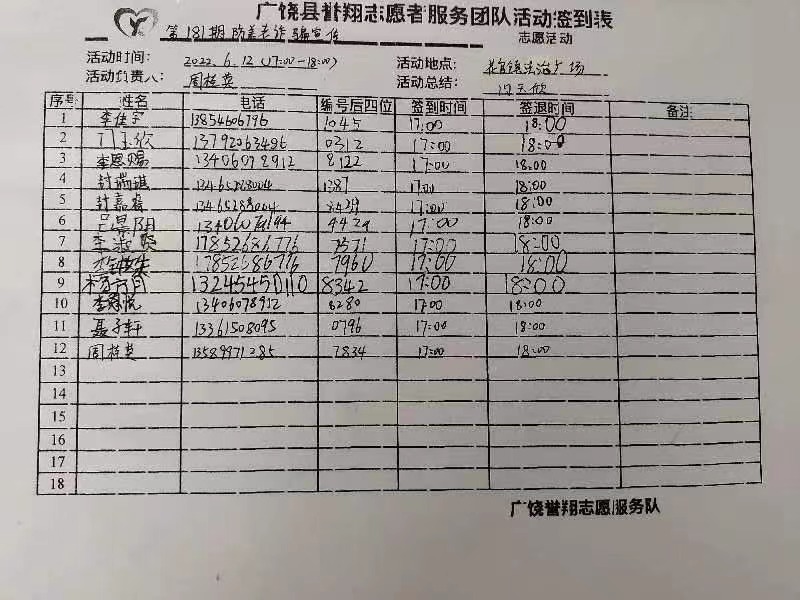 广饶县誉翔志愿者服务团队活动签到表
第181期防养老诈骗宣传 志愿活动
活动时间： 2022.6.12（17:00-18:00） 活动地点： 花官镇法治广场
活动负责人： 周桂英 活动总结： 闫玉欣
序号 姓名 电话 编号后四位 签到时间 签退时间 备注
1 李佳宇 13854606796 1045 17:00 18:00
2 13792063496 0312 17:00 18:00
3 李恩赐 13406078912 8122 17:00 18:00
4 封瑞琪 13465288004 1387 17:00 18:00
5 封嘉睿 13465288004 17:00 18:00
6 吕景阳 4429 17:00 18:00
7 李淑贤 17852686776 7571 17:00 18:00
8 17852686776 7960 17:00 18:00
9 13245450110 8342 17:00 18:00
10 李恩悦 13406078912 8280 17:00 18:00
11 聂子轩 13361508095 0796 17:00 18:00
12 周桂英 13589971285 7834 17:00 18:00
13
14
15
16
17
18
广饶誉翔志愿服务队